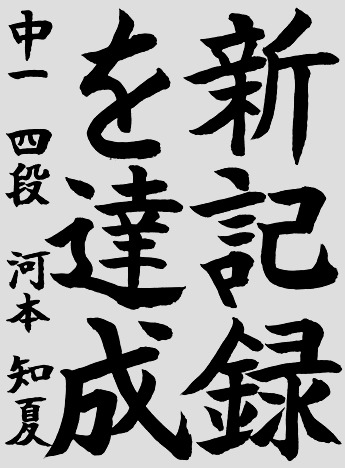 新記録
を達成
中一 四段 河本 知夏